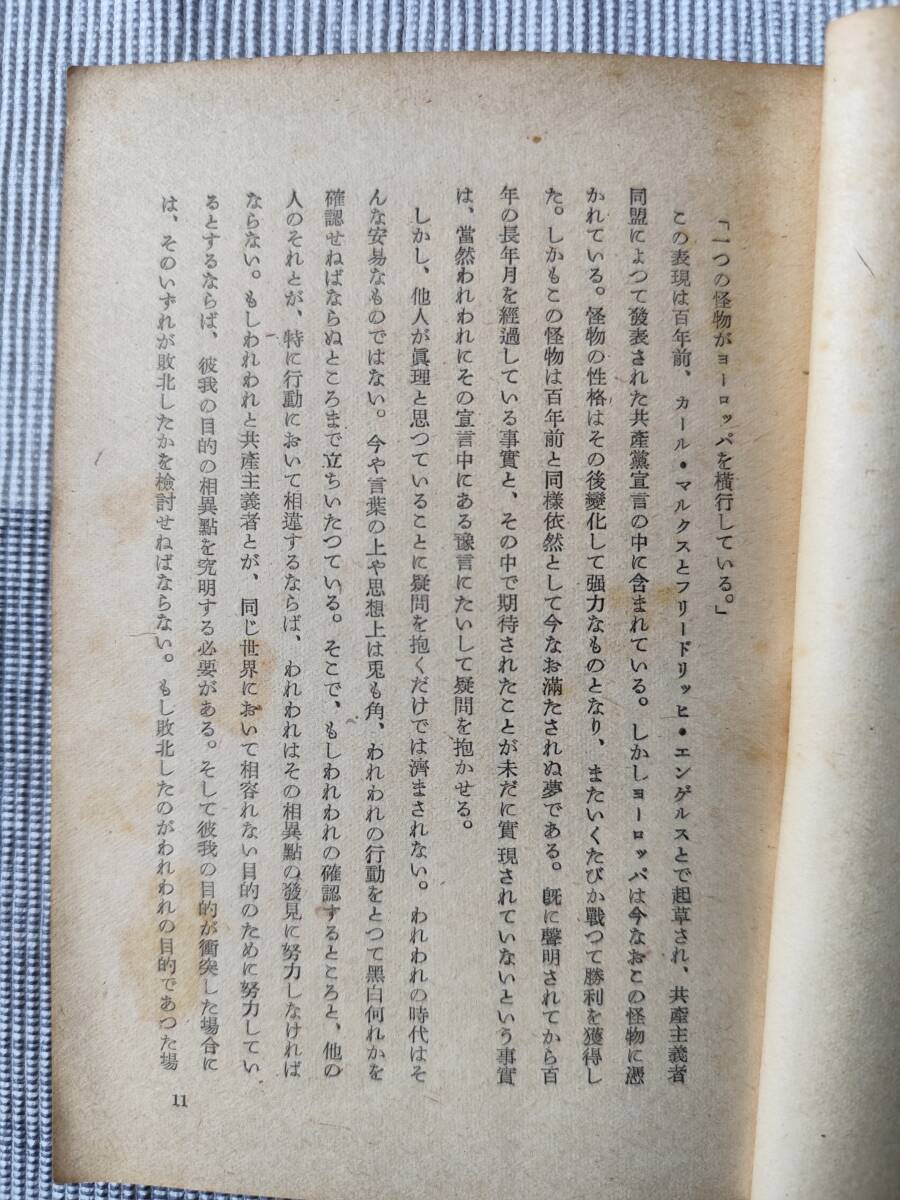 「一つの怪物がヨーロッパを橫行している。」
この表現は百年前、カール・マルクスとフリードリッヒ・エンゲルスとで起草され、共產主義者
同盟によつて發表された共產黨宣言の中に含まれている。しかしヨーロッパは今なおこの怪物に憑
かれている。怪物の性格はその後變化して强力なものとなり、またいくたびか戰つて勝利を獲得し
た。しかもこの怪物は百年前と同様依然として今なお滿たされぬ夢である。旣に聲明されてから百
年の長年月を經過している事實と、その中で期待されたことが未だに實現されていないという事實
は、當然われわれにその宣言中にある豫言にたいして疑問を抱かせる。
しかし、他人が眞理と思つていることに疑問を抱くだけでは濟まされない。われわれの時代はそ
んな安易なものではない。今や言葉の上や思想上は兎も角、われわれの行動をとつて黑白何れかを
確認せねばならぬところまで立ちいたつている。そこで、もしわれわれの確認するところと、他の
人のそれとが、特に行動において相違するならば、われわれはその相異點の發見に努力しなければ
ならない。もしわれわれと共產主義者とが、同じ世界において相容れない目的のために努力してい
るとするならば、彼我の目的の相異點を究明する必要がある。そして彼我の目的が衝突した場合に
は、そのいずれが敗北したかを檢討せねばならない。もし敗北したのがわれわれの目的であつた場
11